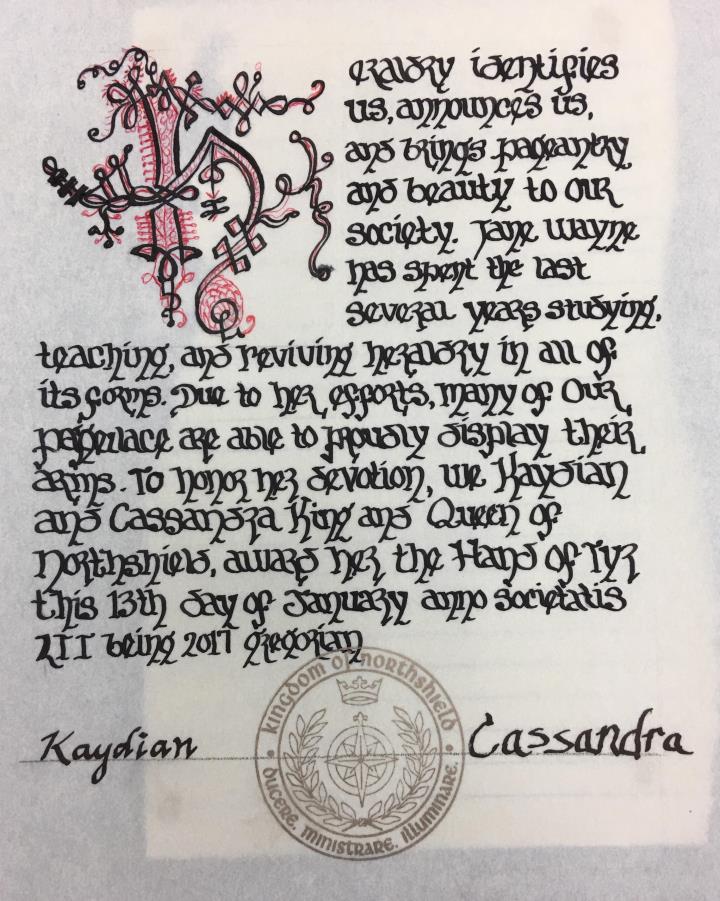 Heraldry identifies
us, announces us,
and brings pageantry
and beauty to our
society. Jane Wayne
has spent the last
several years studying,
teaching, and reviving heraldry in all of
its forms. Due to her efforts, many of Our
populace are able to proudly display their
arms. To honor her devotion, we Kaydian
and Cassandra King and Queen of
Northshield, award her the Hand of Tyr
this 13th day of January anno societatis
LII being 2017 gregorian
Kaydian
Cassandra
Kingdom of Northshield
Ducere. Ministrare. Illuminare.